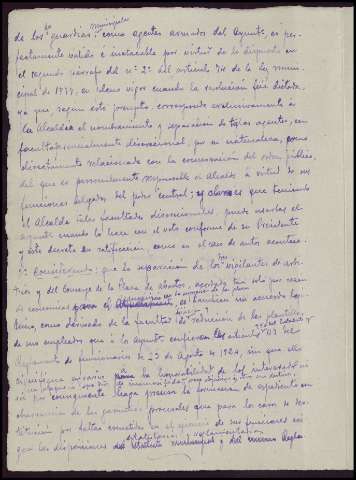 municipales
de los guardias, como agentes armados del Ayuntº, es per-
fectamente valido é inatacable por virtud de lo dispuesto en
el segundo párrafo del nº 2º del artículo 74 de la ley muni-
cipal de 1877, en pleno vigor cuando la resolución fué dictada,
ya que, segun este precepto corresponde exclusivamente á
los Alcaldes el nombramiento y separación de tales agentes, en
facultad esencialmente discrecional, por su naturaleza, por su
directamente relacionada con la conservación del orden público,
del que es personalmente responsable el Alcalde á virtud de sus
funciones delegadas del poder central; y que teniendo
el Alcalde tales facultades discrecionales, puede usarlas el
ayuntº cuando lo hace con el voto conforme de su Presidente
y éste decreta su ratificación, como en el caso de autos acontece.
Considerando: que la separación de los vigilantes de arbi-
trios y del Conserje de la Plaza de Abastos, acordada tan solo por razon
de economias es tambien un acuerdo legí-
timo, como derivado de la facultad de reducción de las plantillas
de sus empleados que a los Ayuntº confieren los articulos 93 del
Reglamento de funcionarios de 23 de Agosto de 1924, sin que ello
la imposibilidad de los interesados
ni por consiguiente haga precisa la formación de expediente con
observancia de las garantías procesales que para los casos de des-
titución por faltas cometidas en el ejercicio de sus funciones exi-
estatutarias y reglamentarias
gen las disposiciones del Estatuto municipal y del mismo Regla-